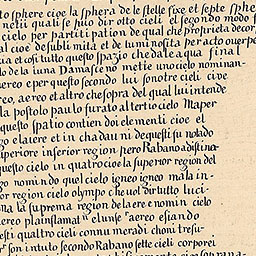 to sphere cioe la sphera de le stelle fixe et septe sphe
cielo per partitation de qual che proprieta decor
al cioe de sublimita et de luminosita
ua et cosi tutto questo spazio che da le aqua final
lo de la luna Damasceno mette uno cielo nominan
aereo e per questo secondo lui sono tre cieli cive
reo, aereo et altro che sopra del qual lui intende
la postolo paulo fu rato al tertio cielo Ma per
questo spatio contien doi elementi cioe el
go e laere et in chadauni de questi su notado
superiore inferior region pero Rabano
uesto cielo in quatro cioe la superior region del
go nomi ndo quel cielo igneo igneo ma la in
ior region cielo olympo che uol dir tutto luci
la suprema region de laere e nomin cielo
aereo per insflamat el unse aereo e siando
esti quatro cieli connu meradi choni tre su
son in tuto secondo Rabano sette cieli corporei